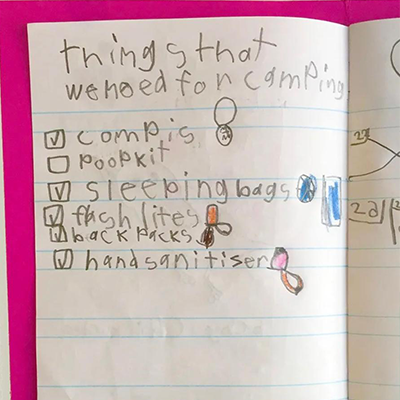 things that
we need for camping
compis
poopkit
sleeping bags
flashlites
back packs
handsanitiser